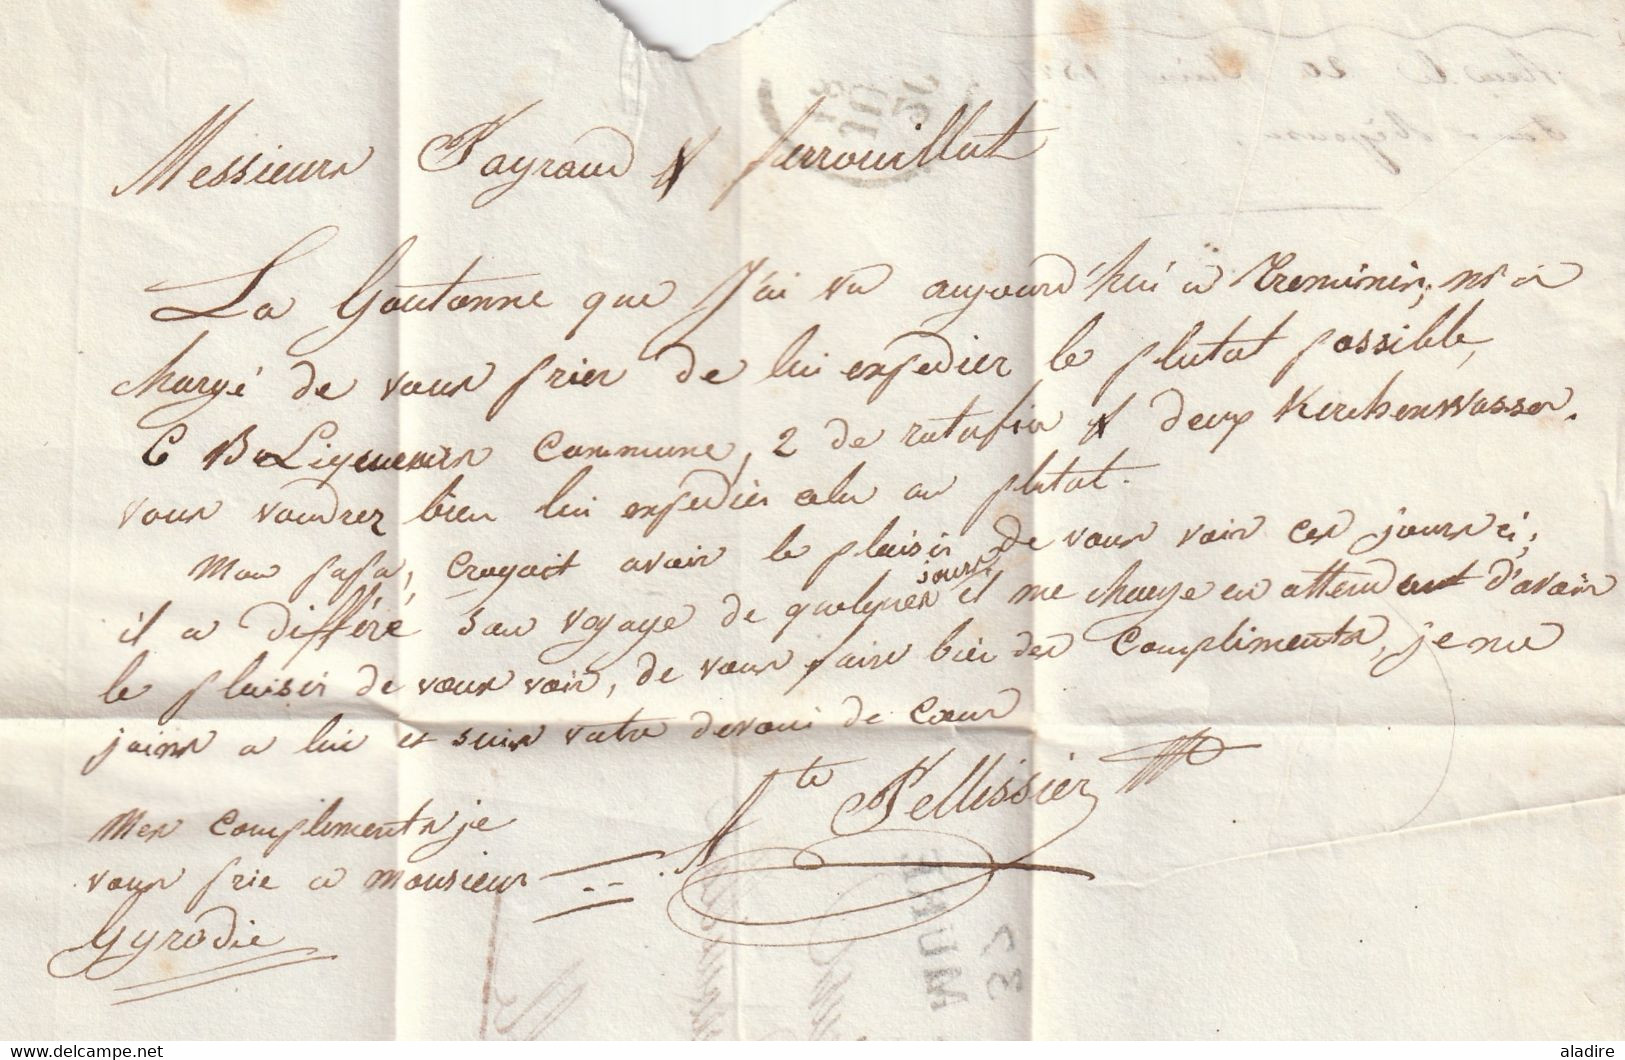 Messieurs Payraud & ferrouillat
La Goutonne que J'ai vu aujourd'hui à Treminis, m'a
chargé de vous prier de lui expedier le plutot possible,
6 Bes Liqueurs Commune, 2 de ratafia & deux Kirchenwasser.
vous voudrez bien lui expedier cela au plutot.
Mon papa, croyait avoir le plaisir de vous voir ces jours ci,
il a différé son voyage de quelques jours et me charge en attendant d'avoir
le plaisir de vous voir, de vous faire bien des Compliments, je me
joins a lui et suis votre devoué de cœur
Pellissier
Mes compliments je
vous prie a monsieur
Gyrodie
MURE
37
aladire